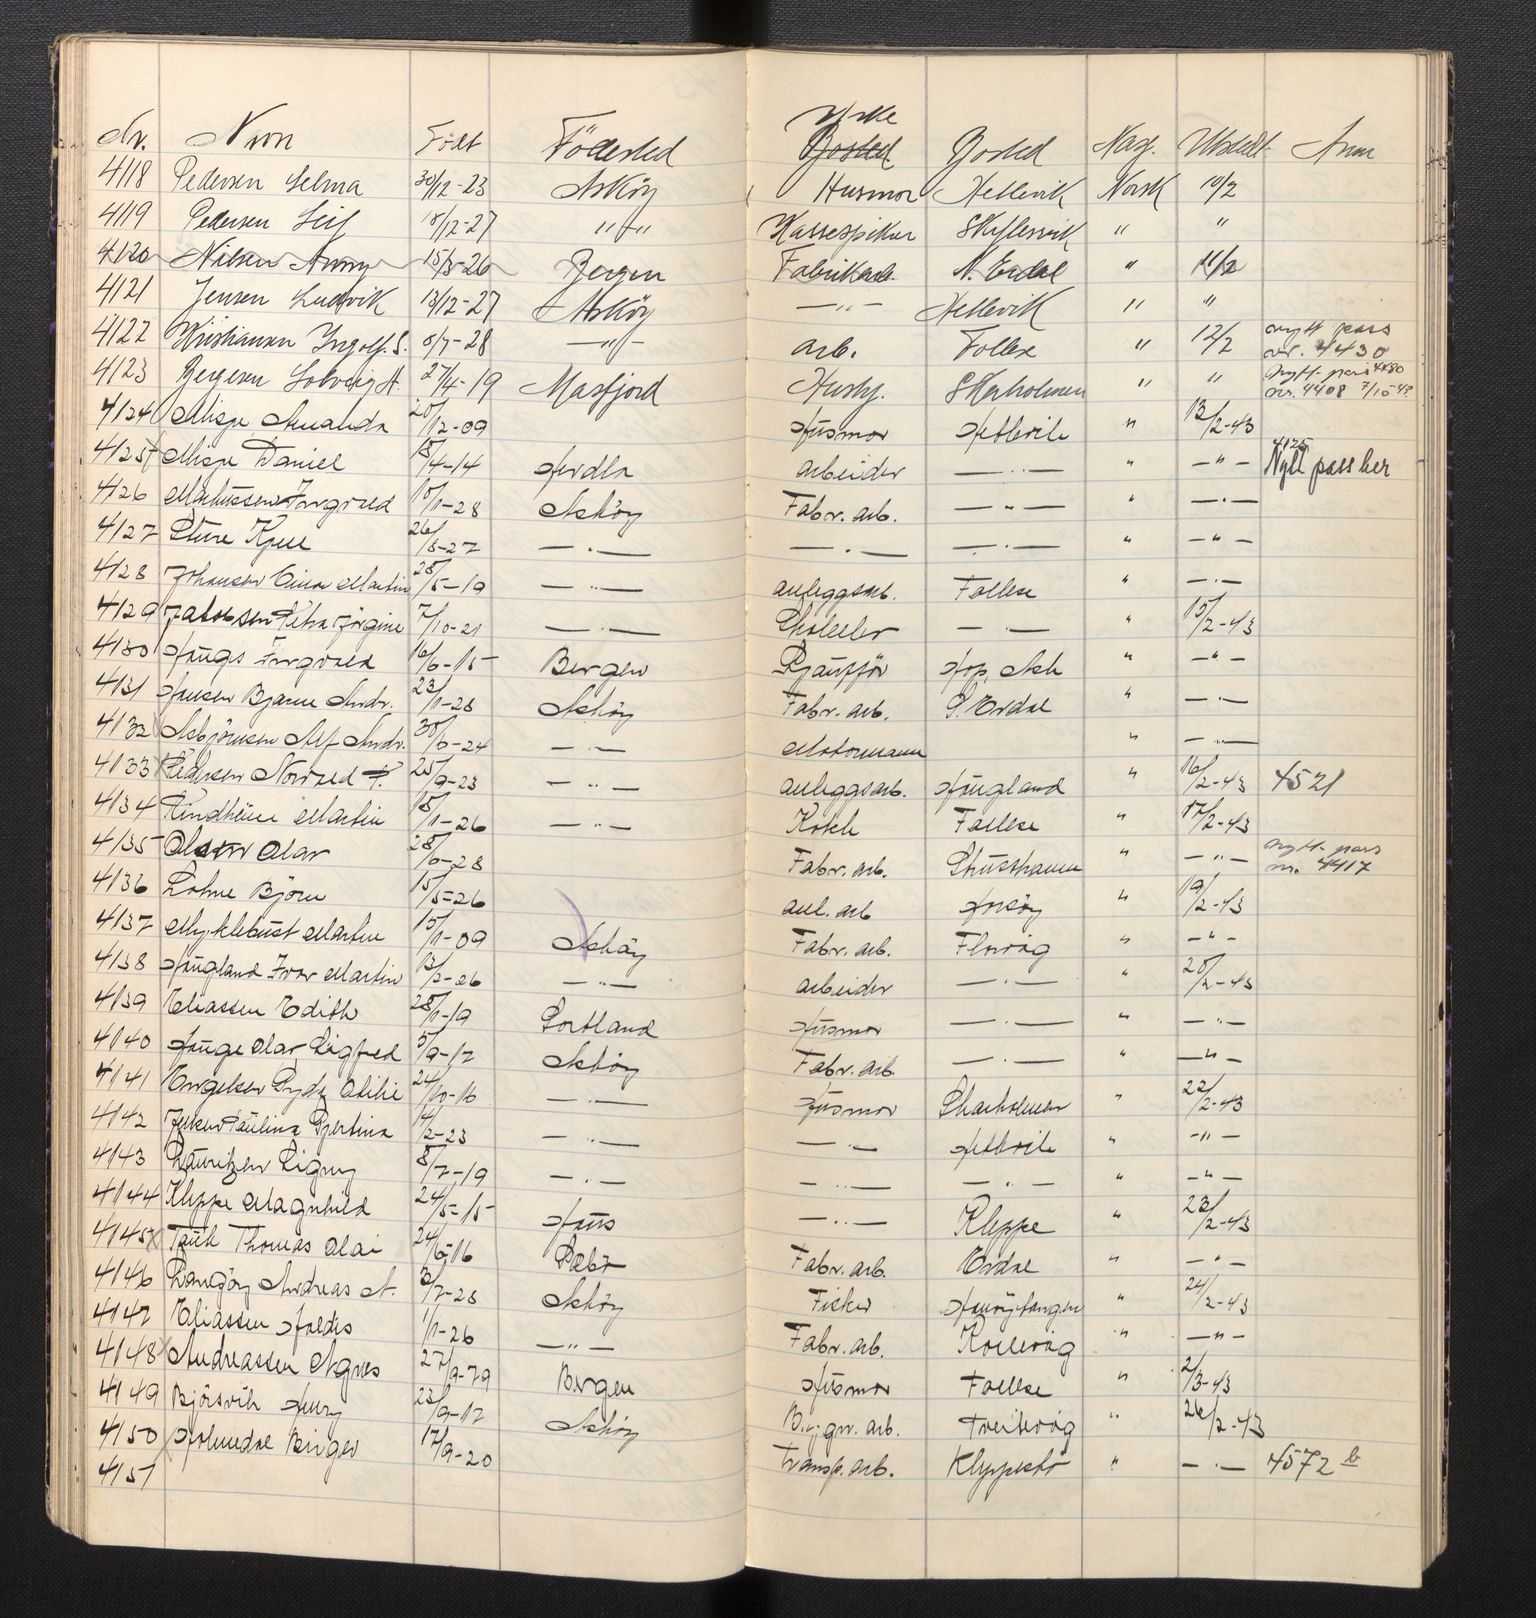 Nr. Navn Født Födested Yrke Bosted Bosted Nasj. Utstedt Anm
4118 Pedersen Selma 30/12-23 Asköy Husmor Hetlevik Norsk 10/2
4119 Pedersen Leif 18/12-27 "-" Kassespiker Skiftesvik " "
4120 Nilsen Anny 15/3-26 Bergen Fabrikarb. N. Erdal " 11/2
4121 Jensen Ludvik 13/12-27 Asköy — " — Hetlevik " "
4122 Kristiansen Ingolf. S. 8/7-28 — " — arb. Follese " 12/2 nytt pass nr. 4430
4123 Bergesen Solveig H. 27/4-19 Masfjord Hushj. Skarholmen " " nytt pass 4480 nr. 4408 7/10-43
4124 Misje Amanda 20/12-09 Husmor Hetlevik " 13/2-43
4125 Misje Daniel 18/4-14 Herdla arbeider — " — " — " — 4125 Nytt pass her
4126 Markussen Ingvald 10/11-28 Asköy Fabr. arb. — " — " — " —
4127 Sture Kjell 26/8-27 — " — — " — — " — " — " —
4128 Johansen Einar Martin 28/5-19 — " — anleggsarb. Follese " — " —
4129 Jakobsen Petra Jörgine 7/10-21 — " — — " — " 15/2-43
4130 Haugs Ingvald 16/6-15 Bergen Sjauför Hop, Ask " — " —
4131 Hansen Bjarne Andr. 23/11-28 Asköy Fabr. arb. S. Erdal " — " —
4132 Asbjörnsen Alf Andr. 30/6-24 — " — Motormann " — " —
4133 Pedersen Norvald F. 25/9-23 — " — anleggsarb. Haugland " 16/2-43 4521
4134 Rindheim Martin 18/11-26 — " — Kokk Follese " 17/2-43
4135 Olsen Olav 28/6-28 Fabr. arb. Strusshamn " — " — nytt pass nr. 4417
4136 Lohne Björn 15/5-26 anl. arb Horsöy " 19/2-43
4137 Myklebust Martin 15/11-09 Asköy Fabr. arb. Florvåg " — " —
4138 Haugland Ivar Martin 13/2-26 — " — arbeider — " — " 20/2-43
4139 Eliassen Edith 28/11-19 Sortland Husmor — " — " — " —
4140 Hauge Olav Sigfred 5/9-17 Asköy Fabr. arb. — " — " — " —
4141 Engelsen Otilie 24/10-16 — " — Husmor Skarholmen " 22/2-43
4142 Paulina Gjertina 14/2-23 — " — — " — Hetlevik " — " —
4143 Lauritzen Signy 8/7-19 — " — — " — — " — " — " —
4144 Kleppe Magnhild 24/5-15 Haus — " — Kleppe " 23/2-43
4145 Tauk Thomas Olai 24/6-16 Sæbø Fabr. arb. Erdal " — " —
4146 Andreas A. 3/7-28 Asköy Fisker Hanöytangen " 24/2-43
4147 Eliassen Haldis 1/11-26 — " — Fabr. arb. Kollevåg " — " —
4148 Andreassen Agnes 27/9-79 Bergen Husmor Follese " 2/3-43
4149 Björsvik Henry 23/9-17 Asköy Bygn. arb. Treitevåg " 26/2-43
4150 Holmedal Birger 17/9-20 Transp. arb. Kleppestø " — " — 4572 b
4151